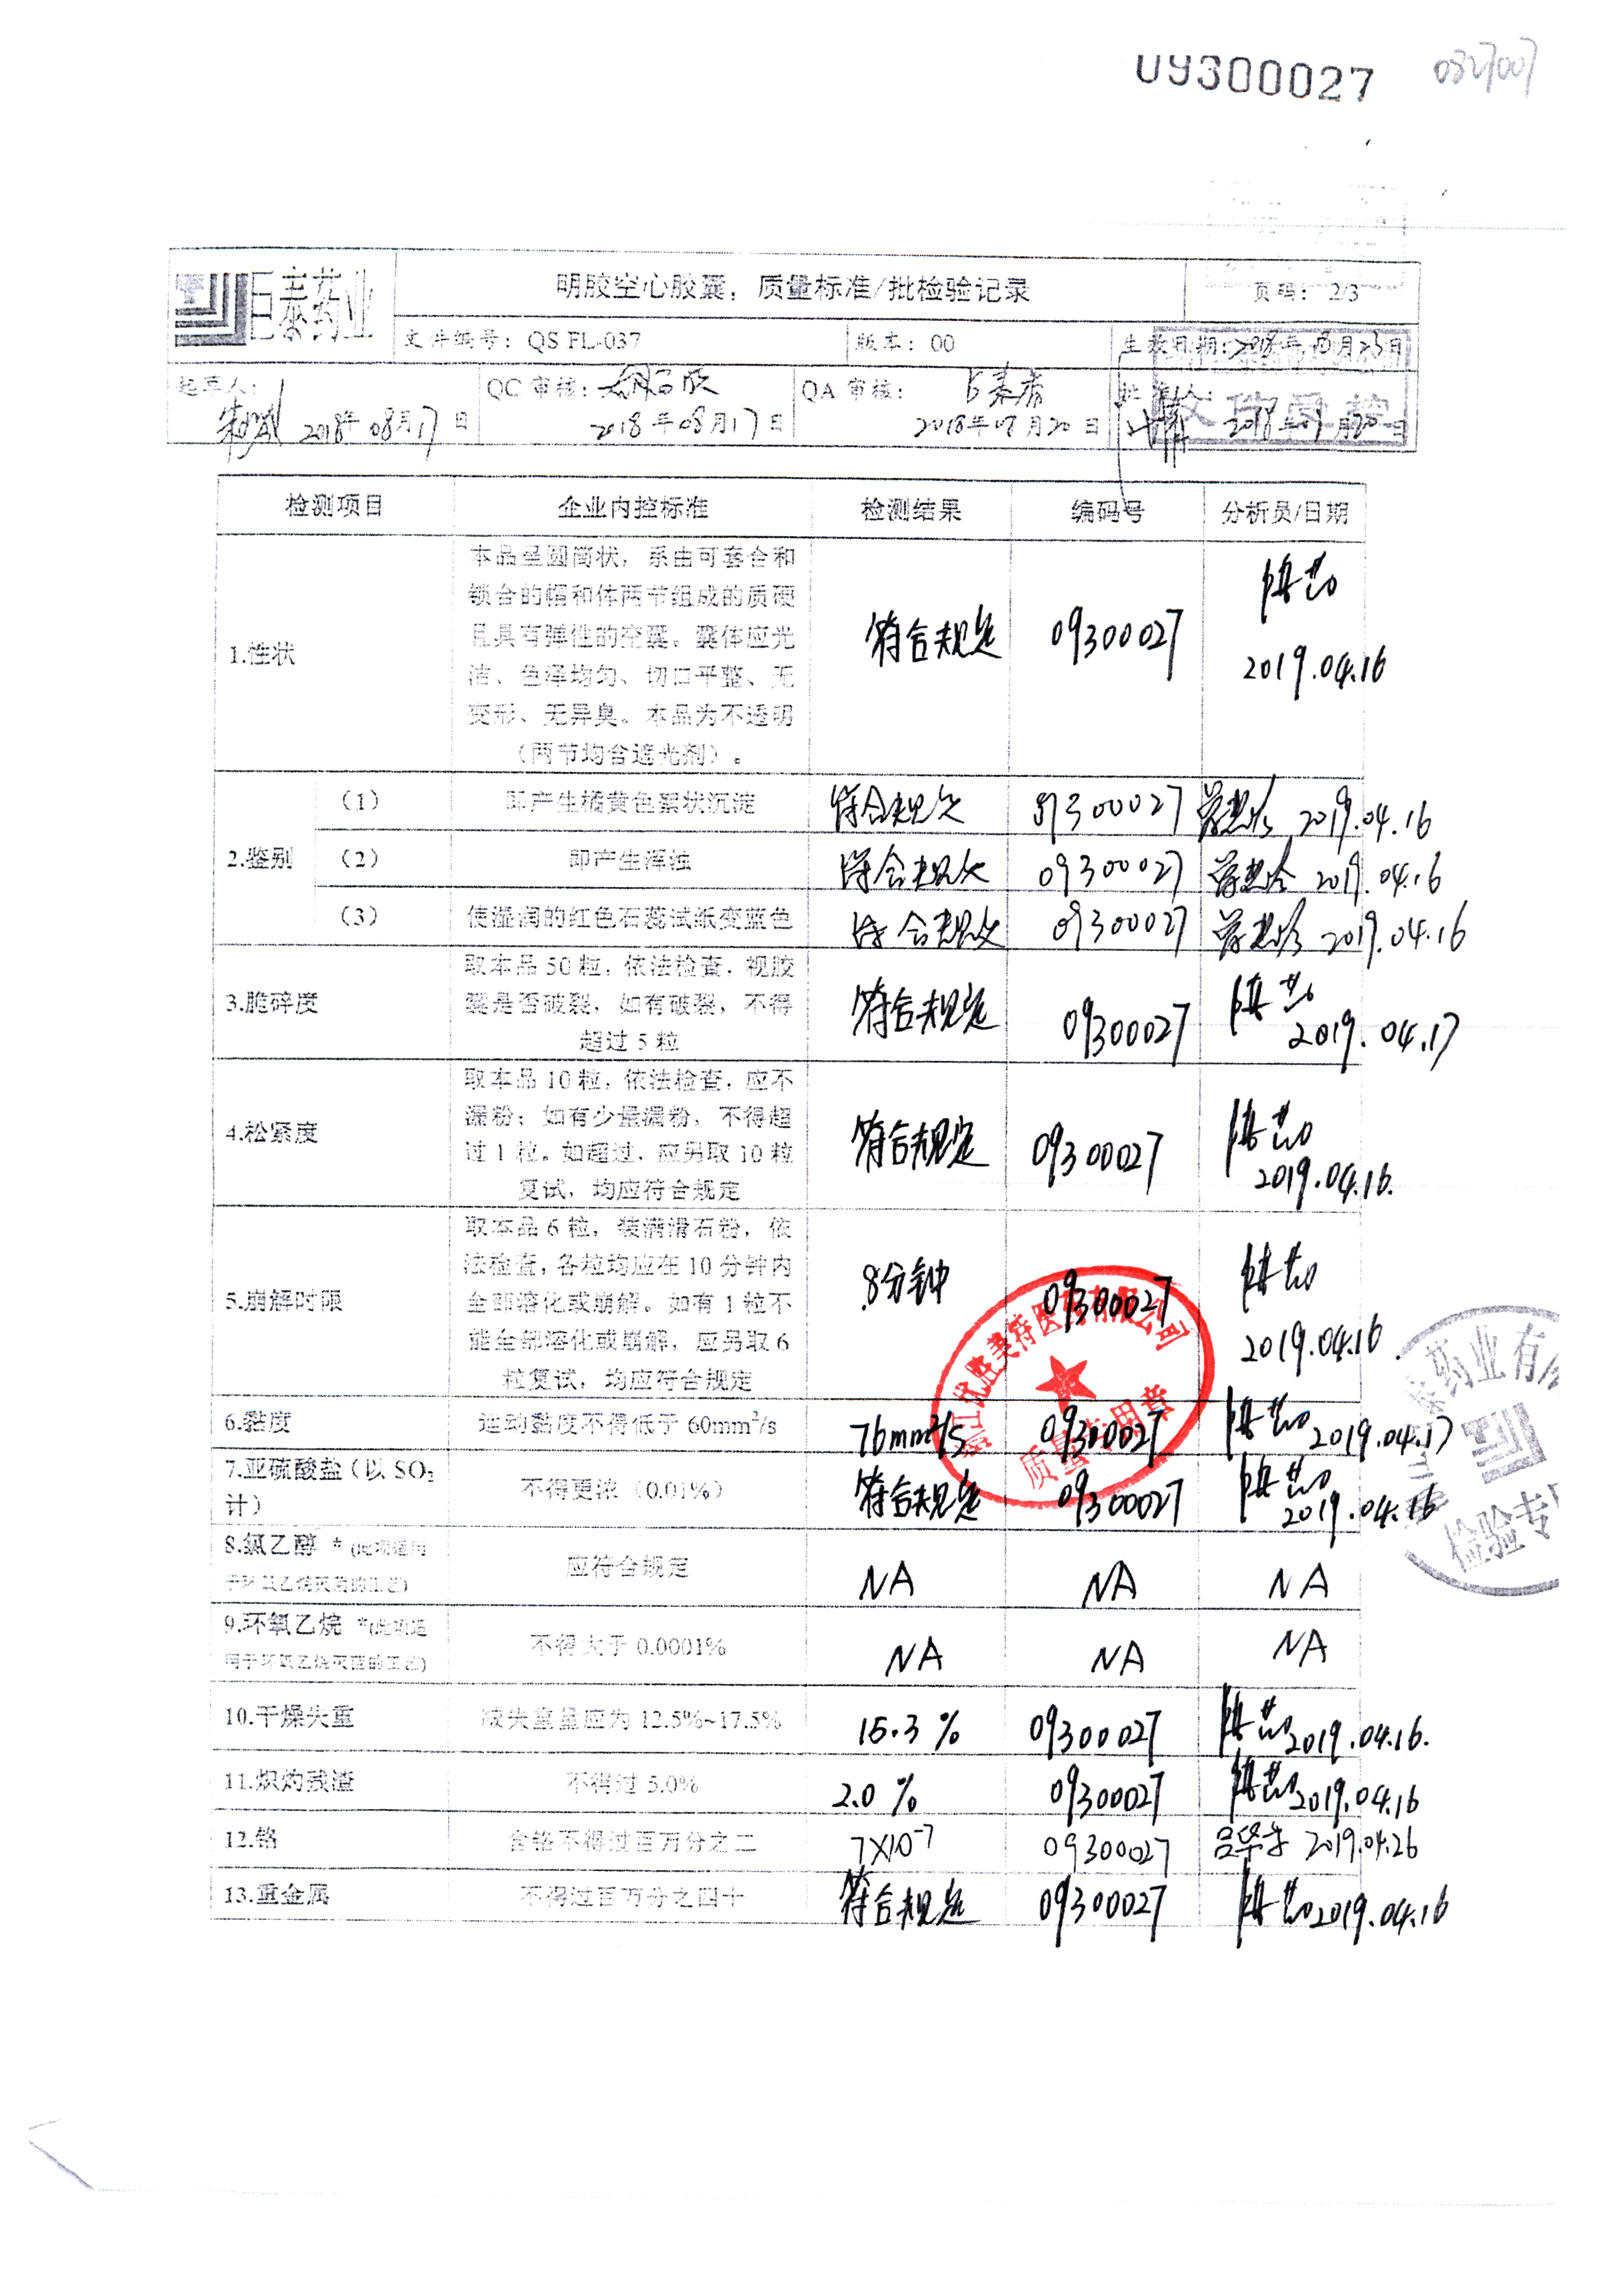 09300027
巨泰药业
明胶空心胶囊，质量标准/批检验记录
页码：2/3
文件编号：QS FL-037
版本：00
生效日期：2018年 月23日
起草人：
QC 审核：
QA 审核：
批准人：
2018年08月17日
2018年08月17日
2018年07月20日
2018年07月20日
检测项目 企业内控标准 检测结果 编码号 分析员/日期
1.性状
本品呈圆筒状，系由可套合和
锁合的帽和体两节组成的质硬
且具有弹性的空囊。囊体应光
洁、色泽均匀、切口平整、无
变形、无异臭。本品为不透明
（两节均含遮光剂）。
符合规定 09300027
2019.04.16
2.鉴别
（1） 即产生橘黄色絮状沉淀 符合规定 09300027 2019.04.16
（2） 即产生浑浊 符合规定 09300027 2019.04.16
（3） 使湿润的红色石蕊试纸变蓝色 符合规定 09300027 2019.04.16
3.脆碎度
取本品50粒，依法检查，视胶
囊是否破裂，如有破裂，不得
超过5粒
符合规定 09300027
2019.04.17
4.松紧度
取本品10粒，依法检查，应不
漏粉；如有少量漏粉，不得超
过1粒。如超过，应另取10粒
复试，均应符合规定
符合规定 09300027
2019.04.16.
5.崩解时限
取本品6粒，装满滑石粉，依
法检查，各粒均应在10分钟内
全部溶化或崩解。如有1粒不
能全部溶化或崩解，应另取6
粒复试，均应符合规定
8分钟 09300027
2019.04.16.
6.黏度 运动黏度不得低于 60mm²/s 76mm²/s 09300027 2019.04.17
7.亚硫酸盐（以 SO₂
计）
不得更浓（0.01%） 符合规定 09300027
2019.04.16
8.氯乙醇 *（此项适用
于环氧乙烷灭菌的工艺）
应符合规定 NA NA NA
9.环氧乙烷 *（此项适
用于环氧乙烷灭菌的工艺）
不得大于 0.0001% NA NA NA
10.干燥失重 减失重量应为 12.5%~17.5% 15.3% 09300027 2019.04.16.
11.炽灼残渣 不得过 5.0% 2.0% 09300027 2019.04.16
12.铬 含铬不得过百万分之二 7×10⁻⁷ 09300027 2019.04.26
13.重金属 不得过百万分之四十 符合规定 09300027 2019.04.16
优胜美特医 有限公司
质量专用章
药业有
检验专